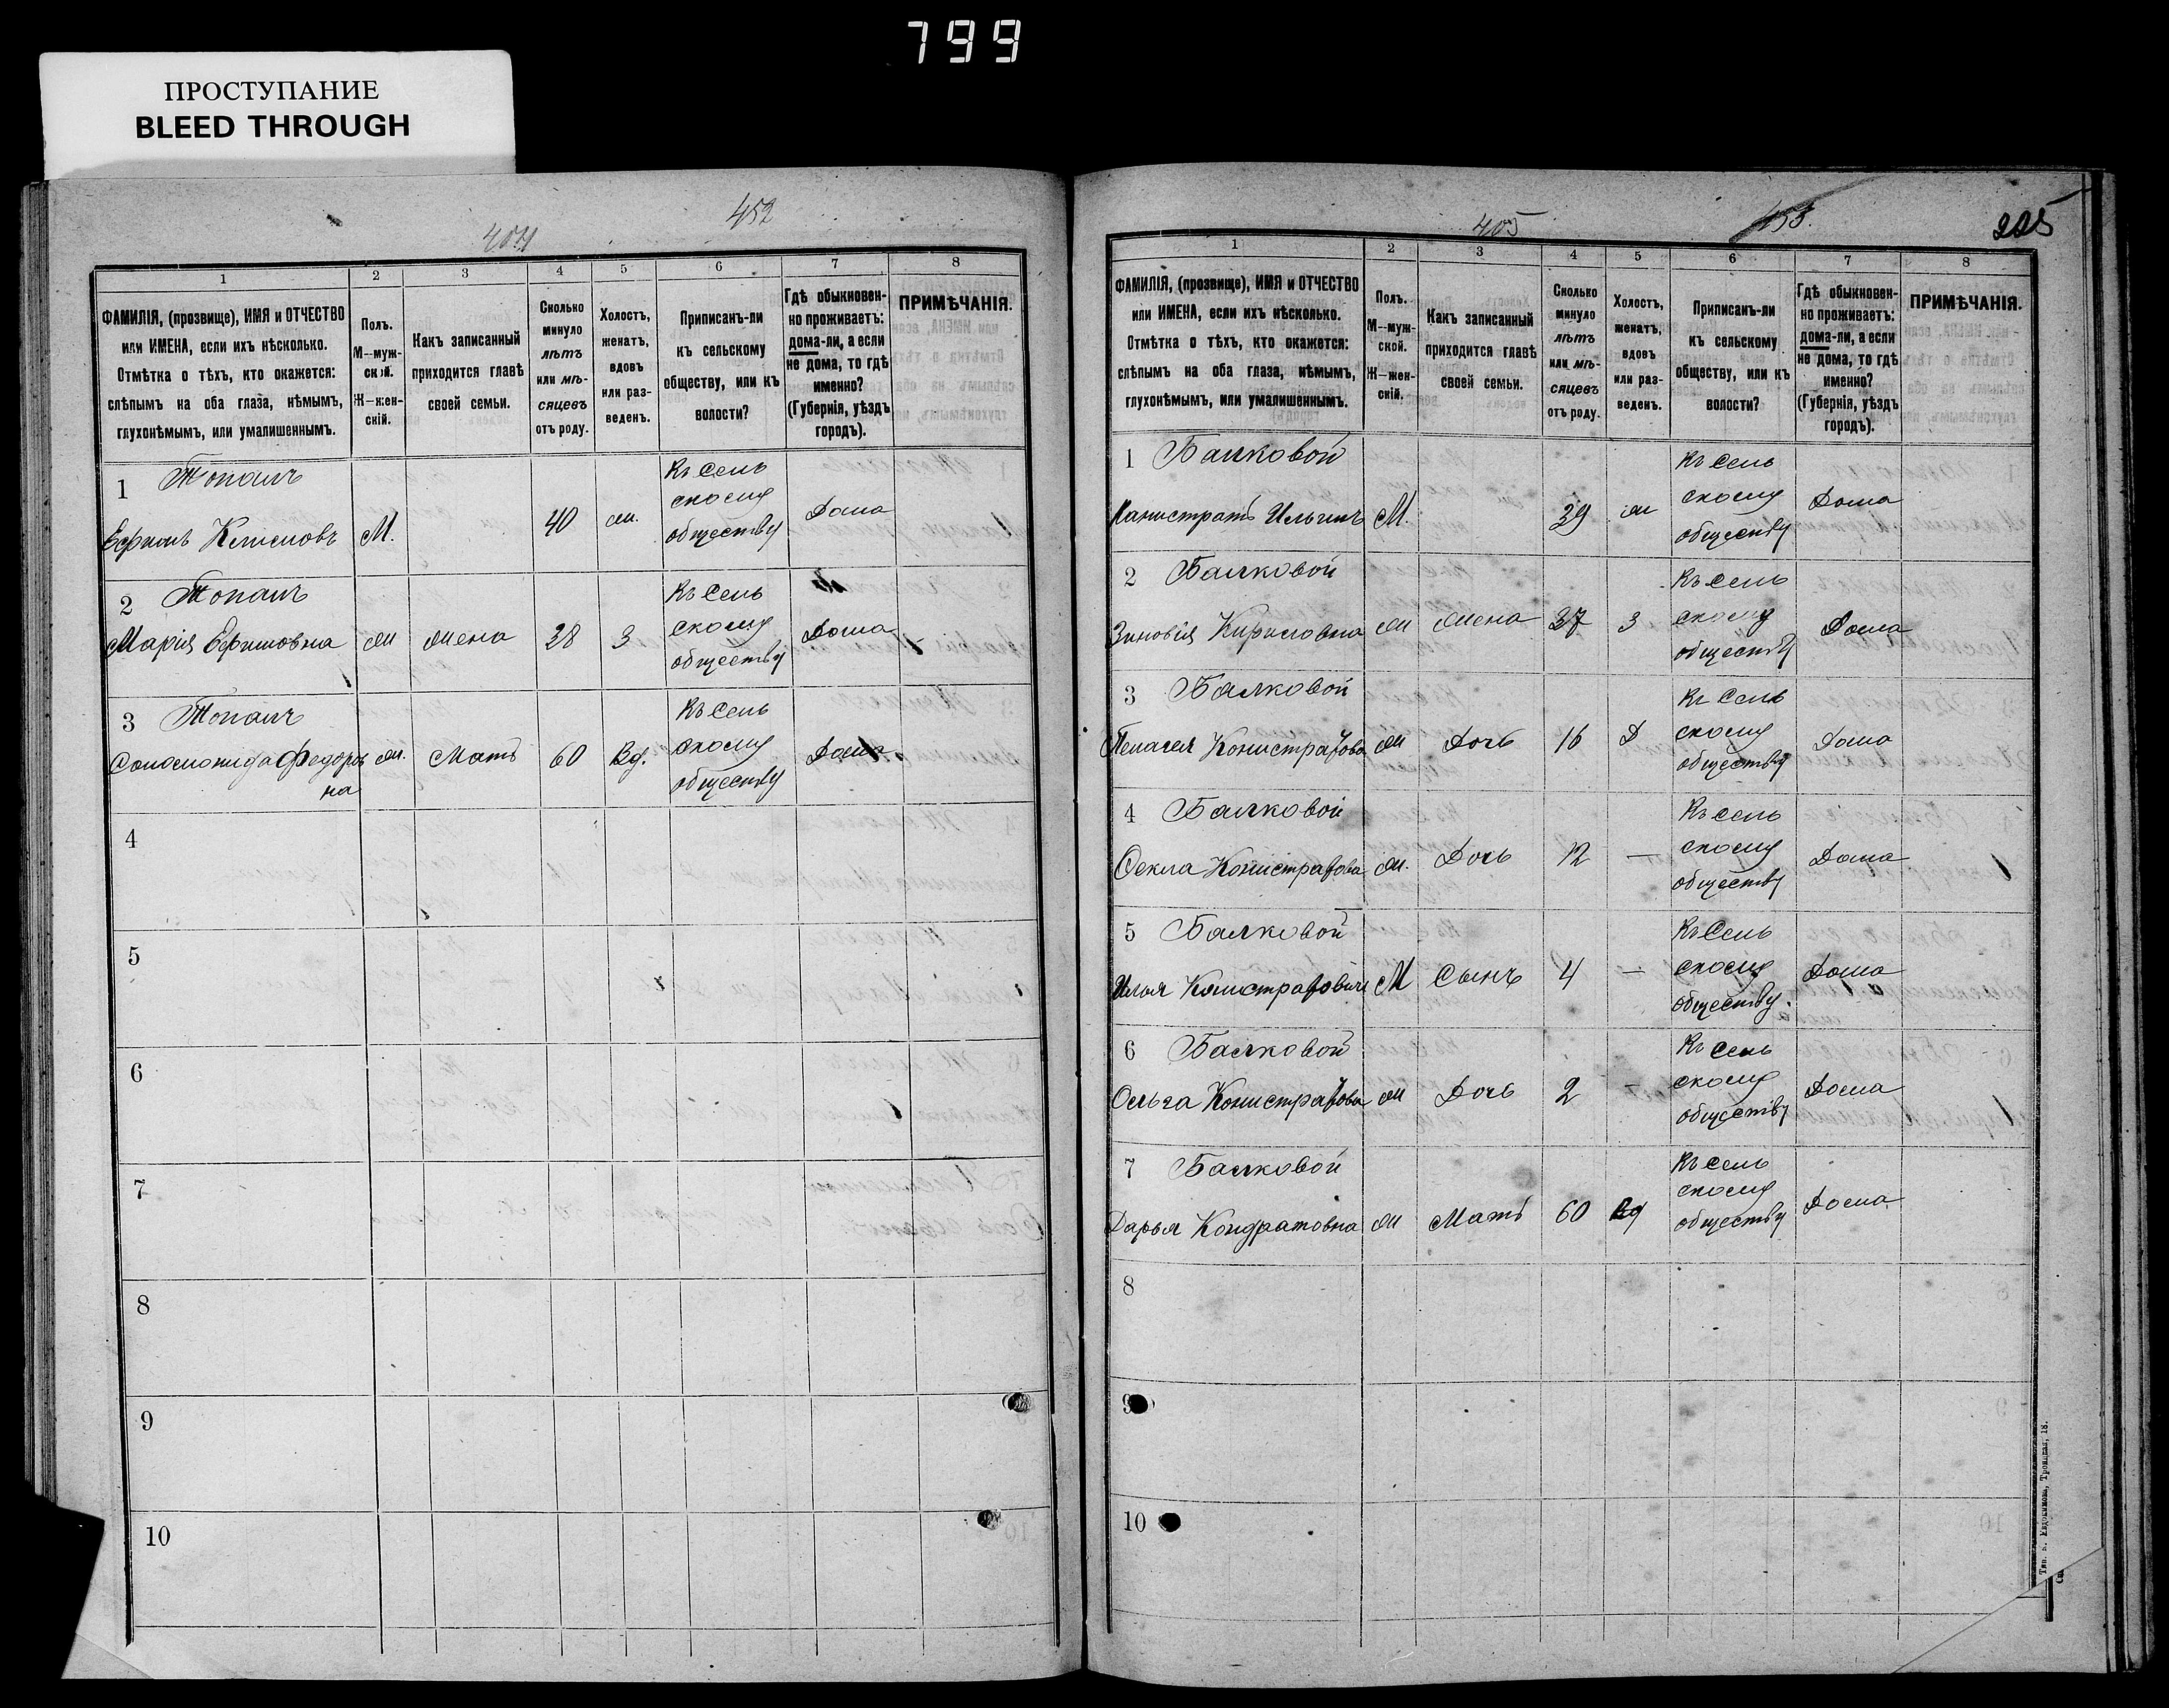 799
ПРОСТУПАНИЕ
BLEED THROUGH
452
404
1 2 3 4 5 6 7 8
ФАМИЛІЯ, (прозвище), ИМЯ и ОТЧЕСТВО
или ИМЕНА, если ихъ нѣсколько.
Отмѣтка о тѣхъ, кто окажется:
слѣпымъ на оба глаза, нѣмымъ,
глухонѣмымъ, или умалишеннымъ.
Полъ.
М—муж-
ской.
Ж—жен-
скій.
Какъ записанный
приходится главѣ
своей семьи.
Сколько
минуло
лѣтъ
или мѣ-
сяцевъ
отъ роду.
Холостъ,
женатъ,
вдовъ
или раз-
веденъ.
Приписанъ-ли
къ сельскому
обществу, или къ
волости?
Гдѣ обыкновен-
но проживаетъ:
дома-ли, а если
не дома, то гдѣ
именно?
(Губернія, уѣздъ
городъ).
ПРИМѢЧАНІЯ.
1 Топалъ
Ефимъ Климовъ М. 40 ж.
Къ Сель
скому
обществу
Дома
2 Топалъ
Марія Ефимовна ж жена 38 З
Къ Сель
скому
обществу
Дома
3 Топалъ
Соломонида Федоров
на
ж. Мать 60 Вд.
Къ Сель
скому
обществу
Дома
4
5
6
7
8
9
10
405
453.
225
1 2 3 4 5 6 7 8
ФАМИЛІЯ, (прозвище), ИМЯ и ОТЧЕСТВО
или ИМЕНА, если ихъ нѣсколько.
Отмѣтка о тѣхъ, кто окажется:
слѣпымъ на оба глаза, нѣмымъ,
глухонѣмымъ, или умалишеннымъ.
Полъ.
М—муж-
ской.
Ж—жен-
скій.
Какъ записанный
приходится главѣ
своей семьи.
Сколько
минуло
лѣтъ
или мѣ-
сяцевъ
отъ роду.
Холостъ,
женатъ,
вдовъ
или раз-
веденъ.
Приписанъ-ли
къ сельскому
обществу, или къ
волости?
Гдѣ обыкновен-
но проживаетъ:
дома-ли, а если
не дома, то гдѣ
именно?
(Губернія, уѣздъ
городъ).
ПРИМѢЧАНІЯ.
1 Балковой
Канистратъ Ильичъ М. 39 ж
Къ Сель
скому
обществу
Дома
2 Балковой
Зиновія Кириловна ж жена 37 З
Къ Сель
скому
обществу
Дома
3 Балковой
Пелагея Конистратова ж Дочь 16 Д
Къ Сель
скому
обществу
Дома
4 Балковой
Фекла Конистратова ж. Дочь 12 —
Къ Сель
скому
обществу
Дома
5 Балковой
Илья Конистратовичъ М Сынъ 4 —
Къ Сель
скому
обществу.
Дома
6 Балковой
Ольга Конистратова ж Дочь 2 -
Къ Сель
скому
обществу
Дома
7 Балковой
Дарья Кондратовна ж Мать 60 Вд
Къ Сель
скому
обществу
Дома.
8
9
10